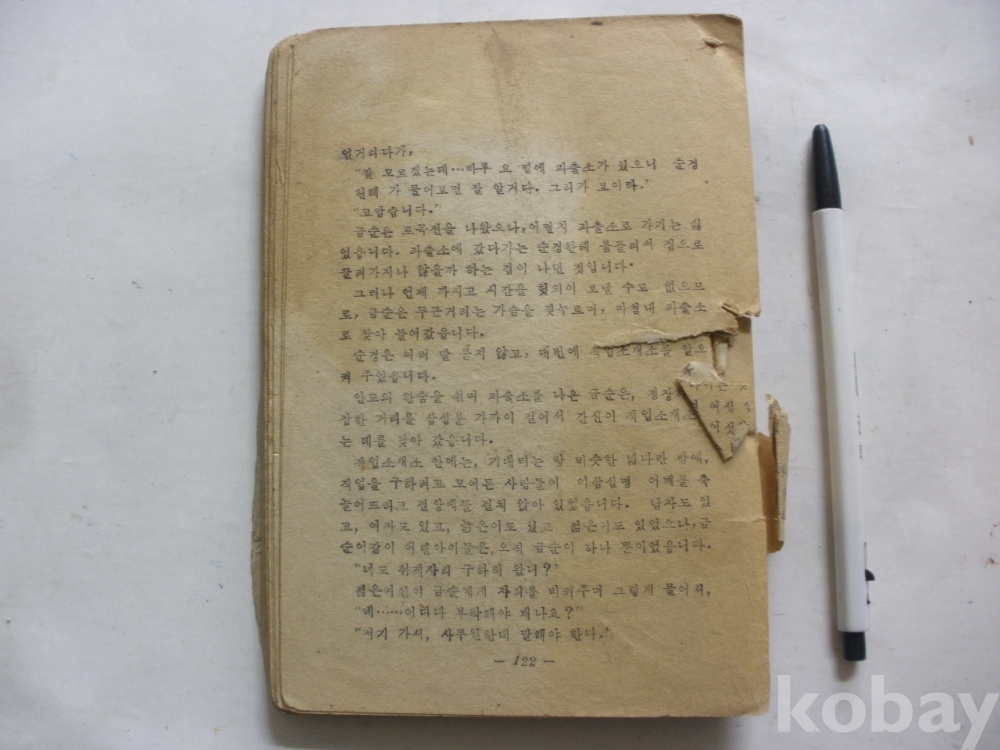 "잘 모르겠는데…바루 요 옆에 파출소가 있으니 순경
한테 가 물어보면 잘 알거다. 그리가 보아라."
"고맙습니다."
금순은 포목전을 나왔으나, 어쩐지 파출소로 가기는 싫
었읍니다. 파출소에 갔다가는 순경한테 붙들려서 집으로
끌려가지나 않을까 하는 겁이 나던 것입니다.
그러나 언제 까지고 시간을 헛되이 보낼 수도 없으므
로, 금순은 두근거리는 가슴을 짓누르며, 마침내 파출소
로 찾아 들어갔읍니다.
순경은 여러 말 묻지 않고, 대번에 직업소개소를 알으
켜 주었읍니다.
안도의 한숨을 쉬며 파출소를 나온 금순은,
잡한 거리를 삼십분 가까이 걸어서 간신히 직업소개소
는 데를 찾아 갔읍니다.
직업소개소 안에는, 기대티는 방 비슷한 넓다란 방에,
직업을 구하려고 모여든 사람들이 이삼십명 어깨를 축
늘어뜨리고 걸상에들 걸쳐 앉아 있었읍니다. 남자도 있
고, 여자도 있고, 늙은이도 있고 젊은이도 있었으나, 금
순이같이 어린아이들은, 오직 금순이 하나 뿐이었읍니다.
"너도 취직자리 구하러 왔니?"
젊은여인이 금순에게 자리를 비켜주며 그렇게 물어서,
"네……어따다 부탁해야 돼나요?"
"저기 가서, 사무원한데 말해야 한다."
— 122 —
여섯
여섯
kobay